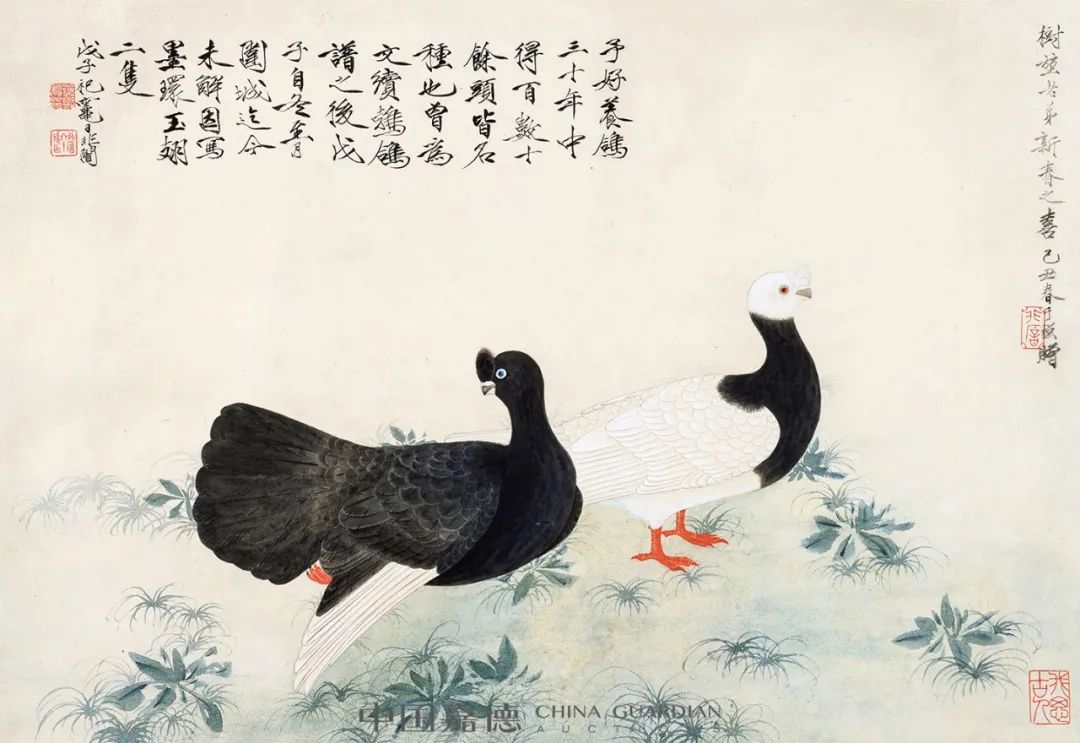 予好養鴿
三十年中
得百數十
餘頭皆名
種也曾為
文續鴿
譜之後戊
子自冬月
圍城迄今
未解因寫
墨環玉翅
二隻
戊子祀竈日非闇
樹弟新春之喜 己丑春于照贈
我思古人
中国嘉德 CHINA GUARDIAN
AUCTIONS